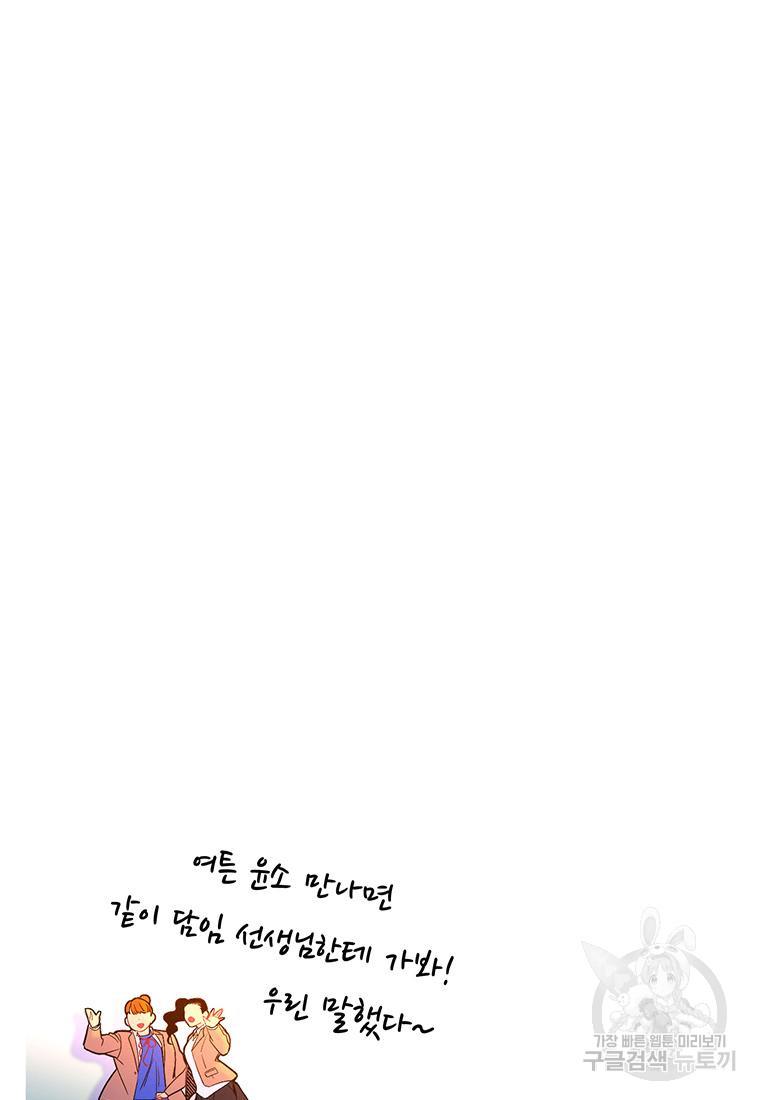 여튼 윤소 만나면
같이 담임 선생님한테 가봐!
우린 말했다~
가장 빠른 웹툰 미리보기
구글검색 뉴토끼